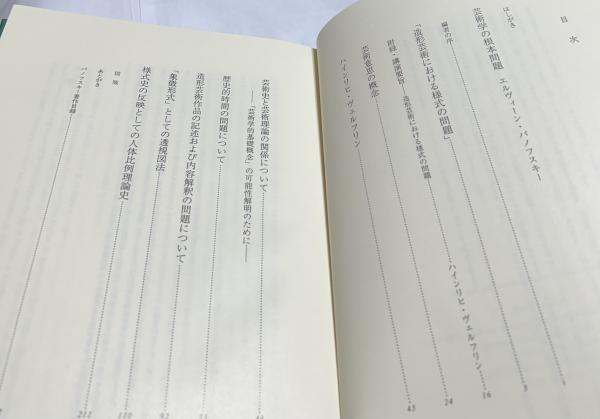 目次
はしがき
芸術学の根本問題 エルヴィーン・パノフスキー
編者の序
「造形芸術における様式の問題」
附録・講演要旨—造形芸術における様式の問題
ハインリヒ・ヴェルフリン
芸術意思の概念
ハインリヒ・ヴェルフリン
1
3
16
24
43
芸術史と芸術理論の関係について
——「芸術学的基礎概念」の可能性解明のために——
歴史的時間の問題について
造形芸術作品の記述および内容解釈の問題について
「象徴形式」としての透視図法
様式史の反映としての人体比例理論史
図版
あとがき
パノフスキー著作目録
92
110
211